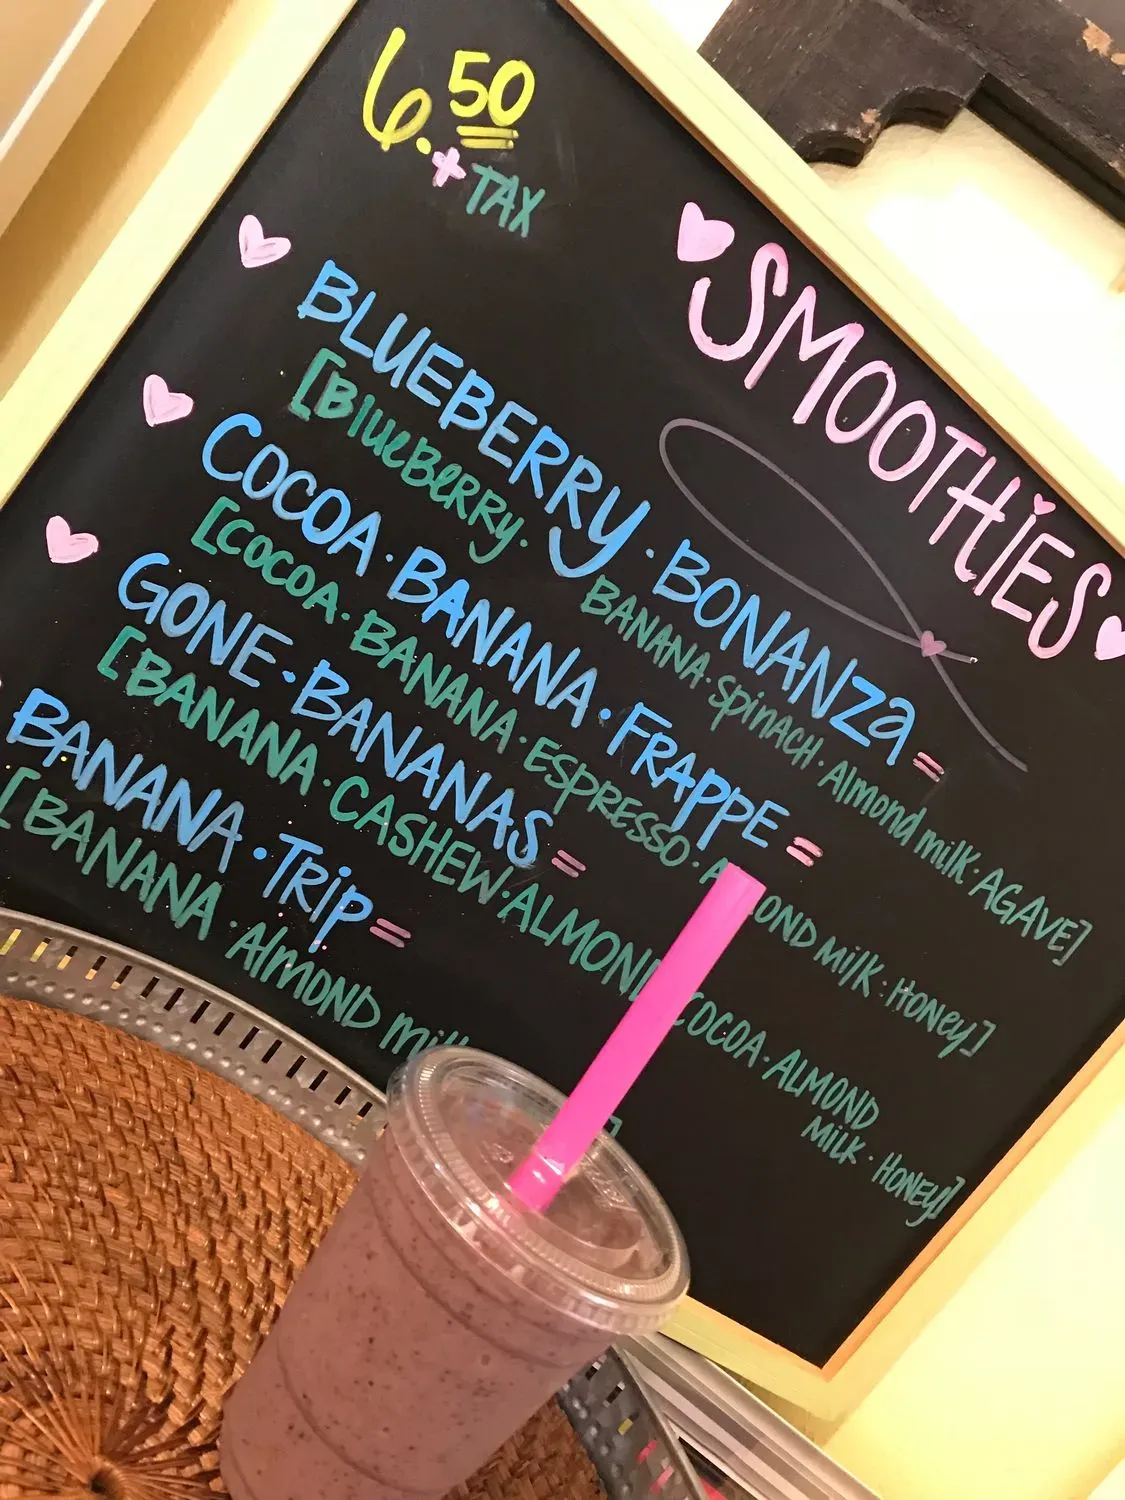 6.50
+ TAX
SMOOTHiES
BLUEBERRY · BONANZa =
[BlueBeRRy · BANANA · Spinach · Almond milk · AGAVE]
COCOA · BANANA · FRAPPE =
[COCOA · BANANA · ESPRESSO · ALMOND MilK · Honey]
GONE · BANANAS =
[BANANA · CASHEW · ALMOND COCOA · ALMOND
MilK · HONEY]
BANANA · TRip =
[BANANA · AlmOND milk
]